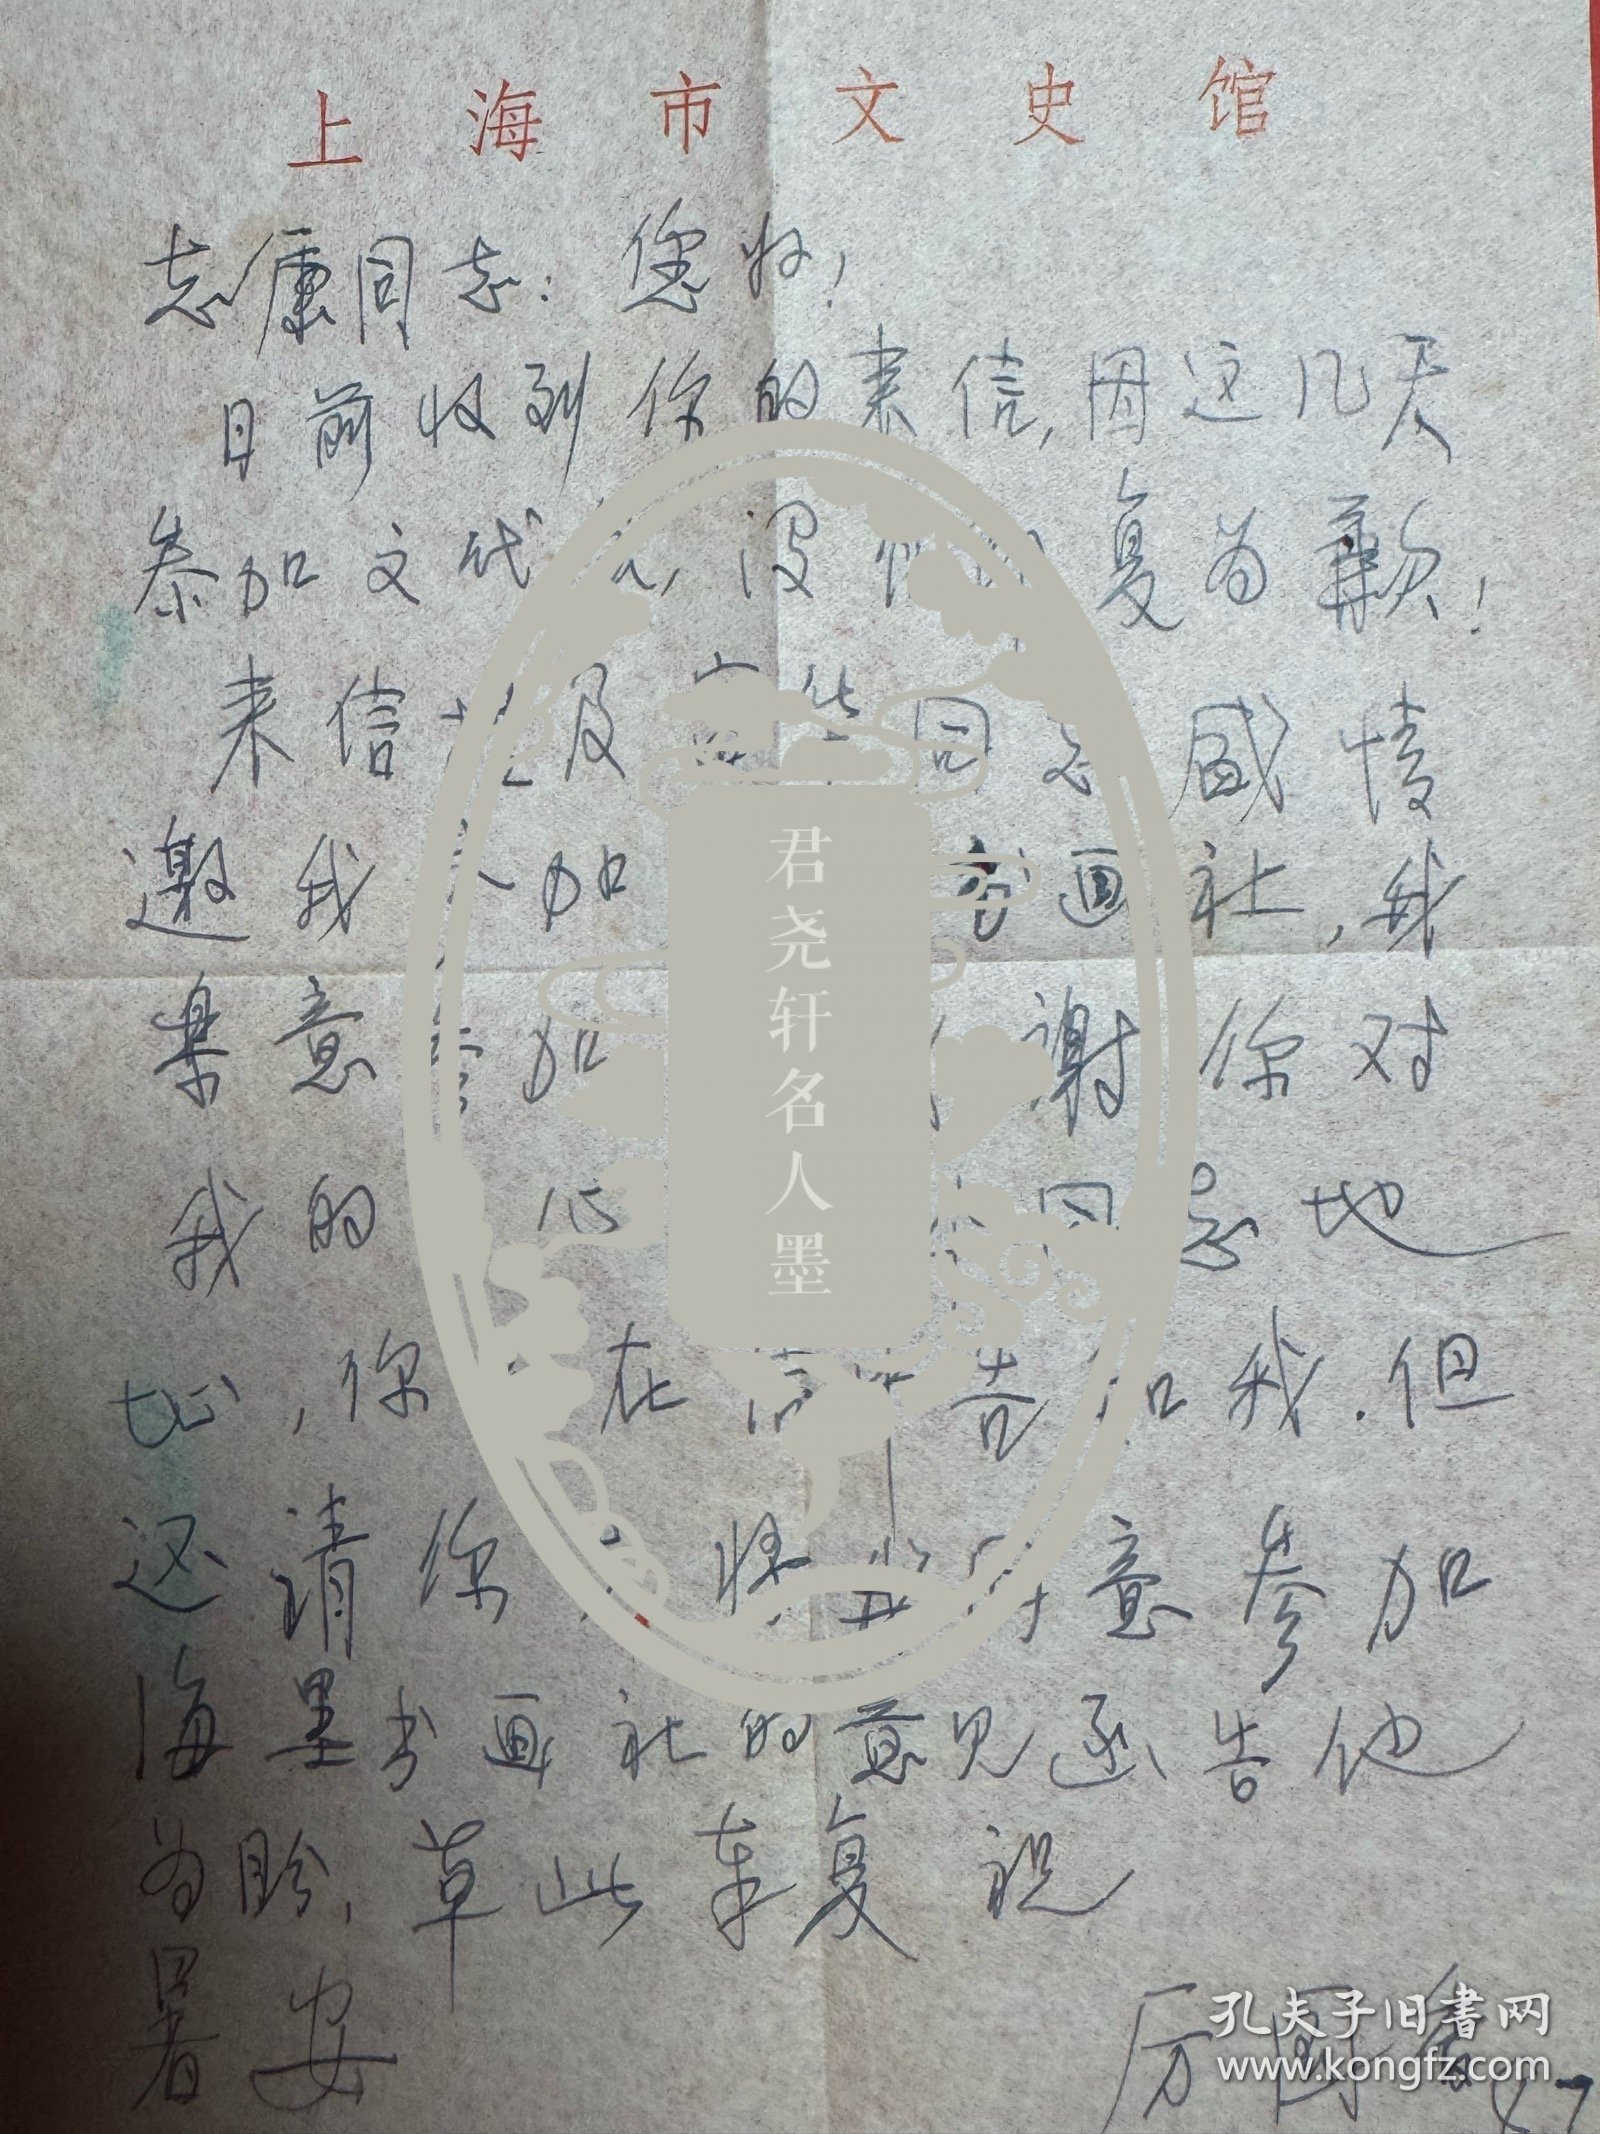 上海市文史馆
志康同志：您好！
日前收到你的来信，因这几天
参加文代 没 复为歉！
来信 及 同志盛情
邀我参加 书画社，我
乐意参加 谢你对
我的 心 同志地
址，你 在信 告知我．但
还请你 将我同意参加
海墨书画社的意见函告他
为盼，草此奉复 祝
暑安
厉国香
7
君尧轩名人墨
孔夫子旧书网
www.kongfz.com